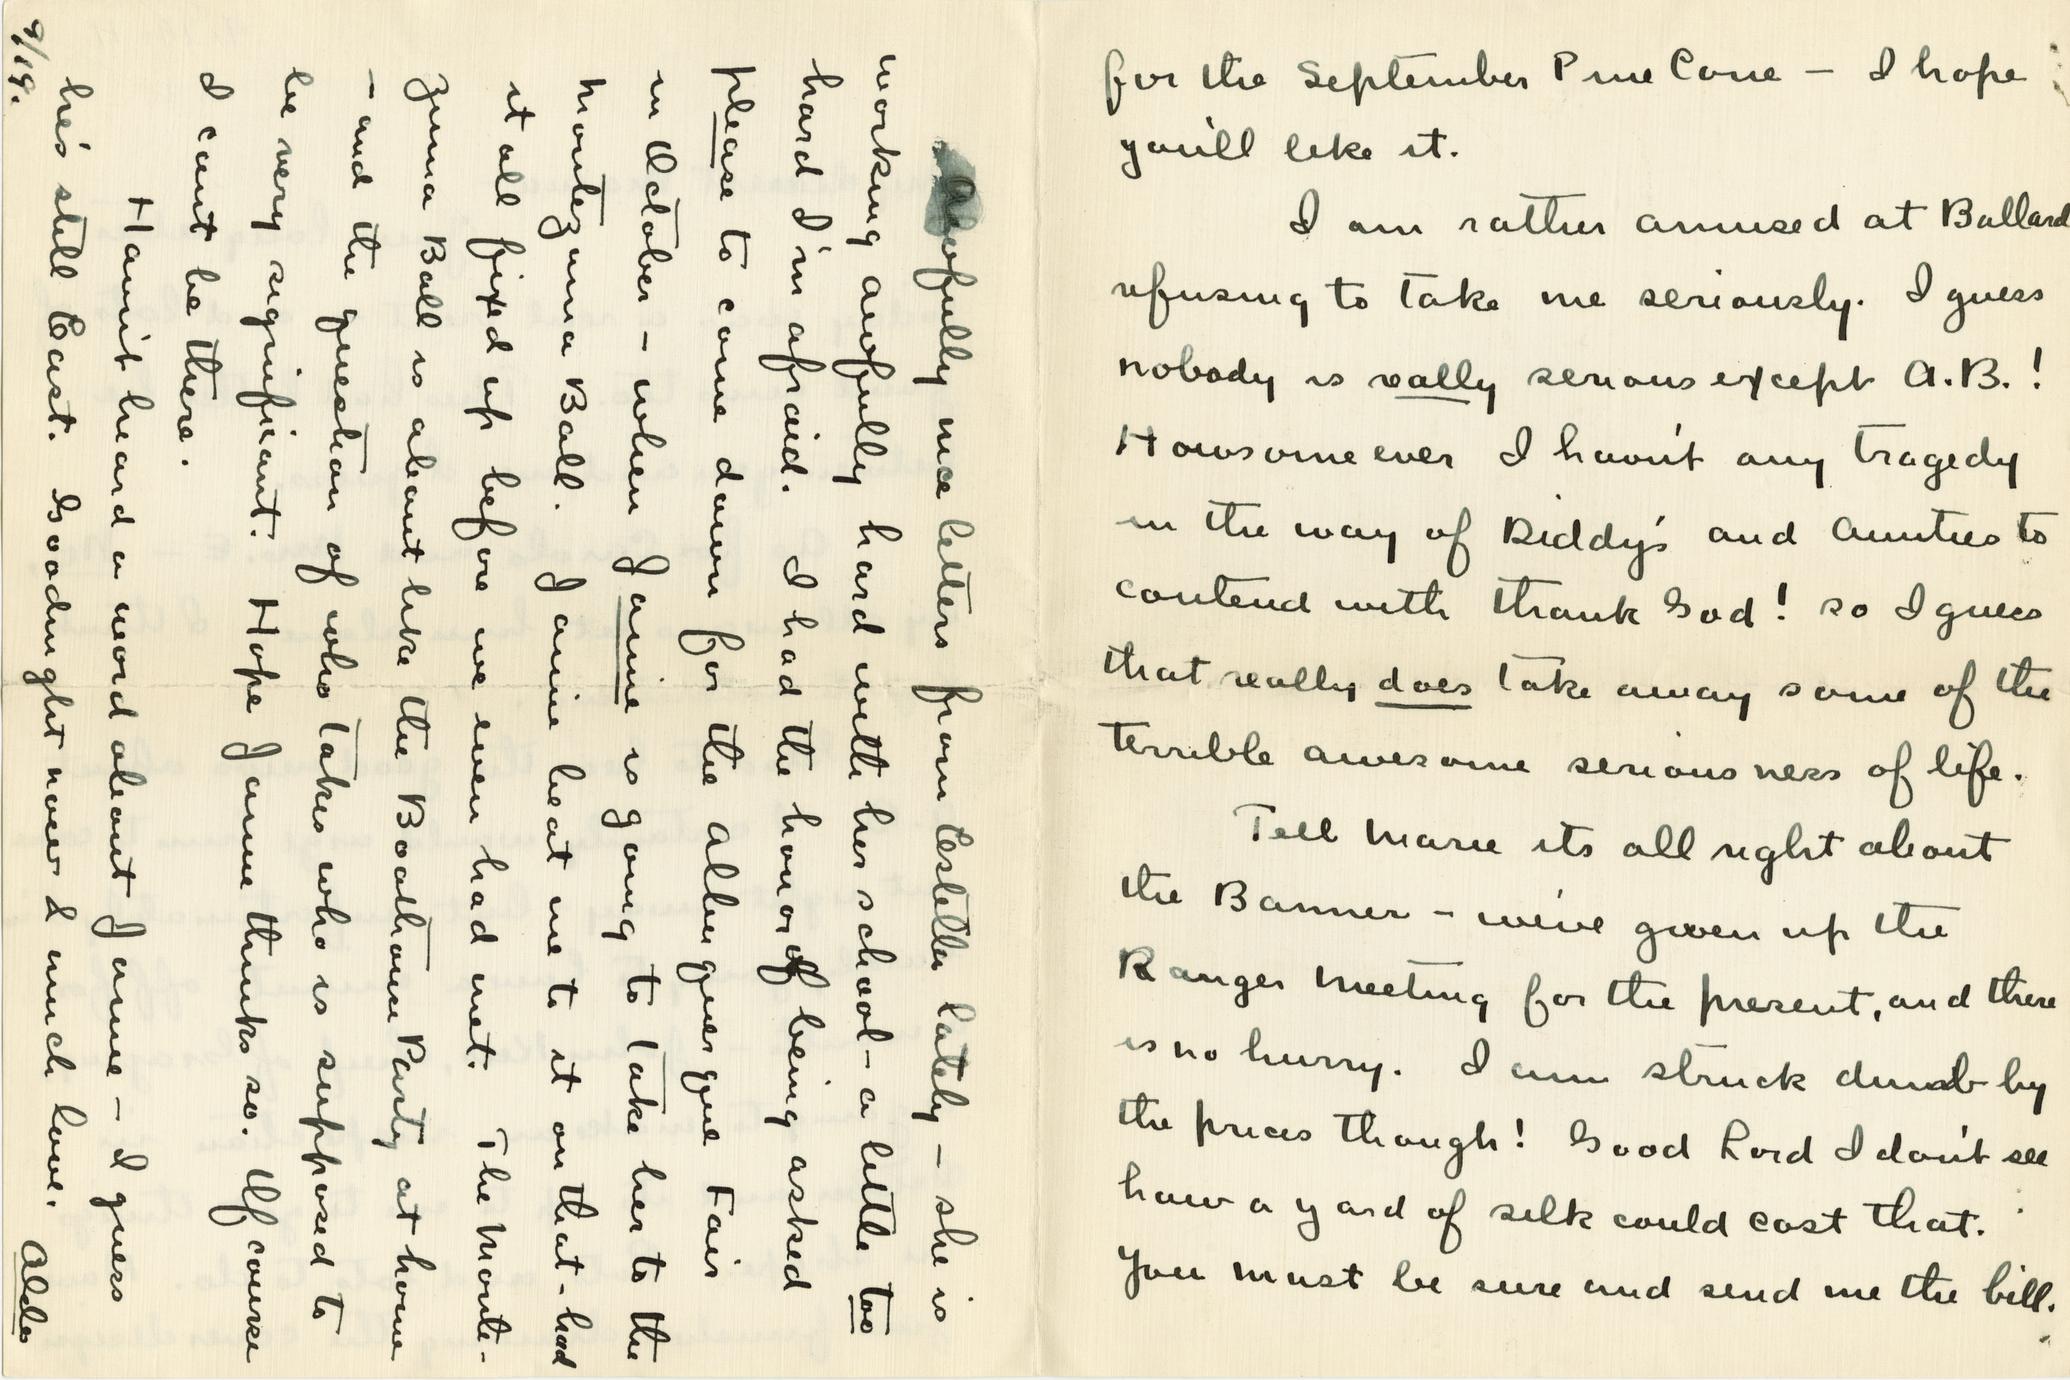 for the September Pine Cone — I hope
you'll like it.
I am rather amused at Ballard
refusing to take me seriously. I guess
nobody is really serious except A.B.!
Howsomeever I hav'nt any tragedy
in the way of Biddy's and Aunties to
contend with thank God! so I guess
that really does take away some of the
terrible awesome seriousness of life.
Tell Marie its all right about
the Banner - we've given up the
Ranger Meeting for the present, and there
is no hurry. I am struck dumb by
the prices though! Good Lord I don't see
how a yard of silk could cost that.
You must be sure and send me the bill.
Awfully nice letters from Estella lately — she is
working awfully hard with her school - a little too
hard I'm afraid. I had the honor of being asked
please to come down for the Alburquerque Fair
in October - when Jamie is going to take her to the
Montezuma Ball. Jamie beat me to it on that - had
it all fixed up before we even had met. The Monte-
zuma Ball is about like the Boathouse Party at home
- and the question of who takes who is supposed to
be very significant. Hope Jamie thinks so. Of course
I cant be there.
Hav'nt heard a word about Jamie — I guess
he's still East. Goodnight now & much love.
Aldo
9/19.